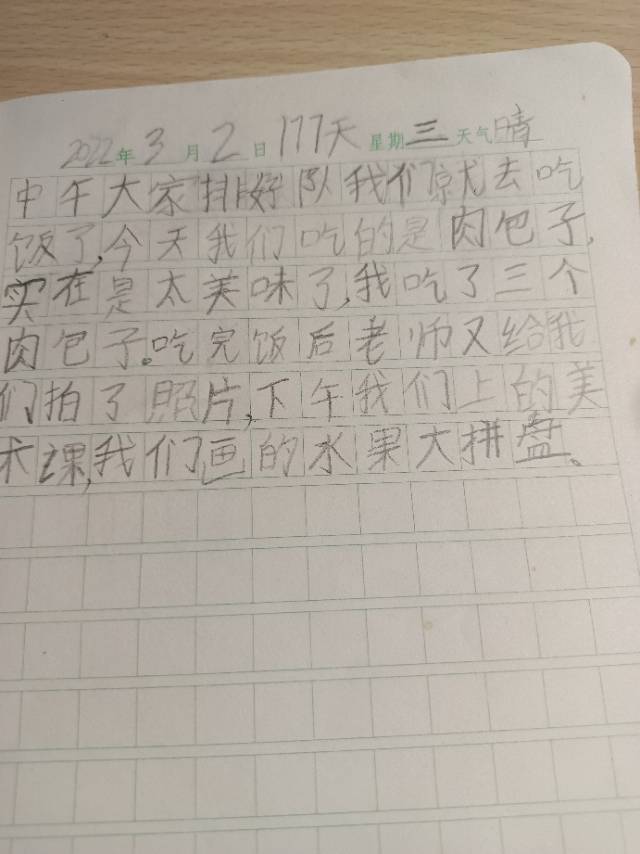 2022年3月2日 177天 星期三 天气晴
中午大家排好队我们就去吃
饭了,今天我们吃的是肉包子,
实在是太美味了,我吃了三个
肉包子。吃完饭后老师又给我
们拍了照片,下午我们上的美
术课,我们画的水果大拼盘。